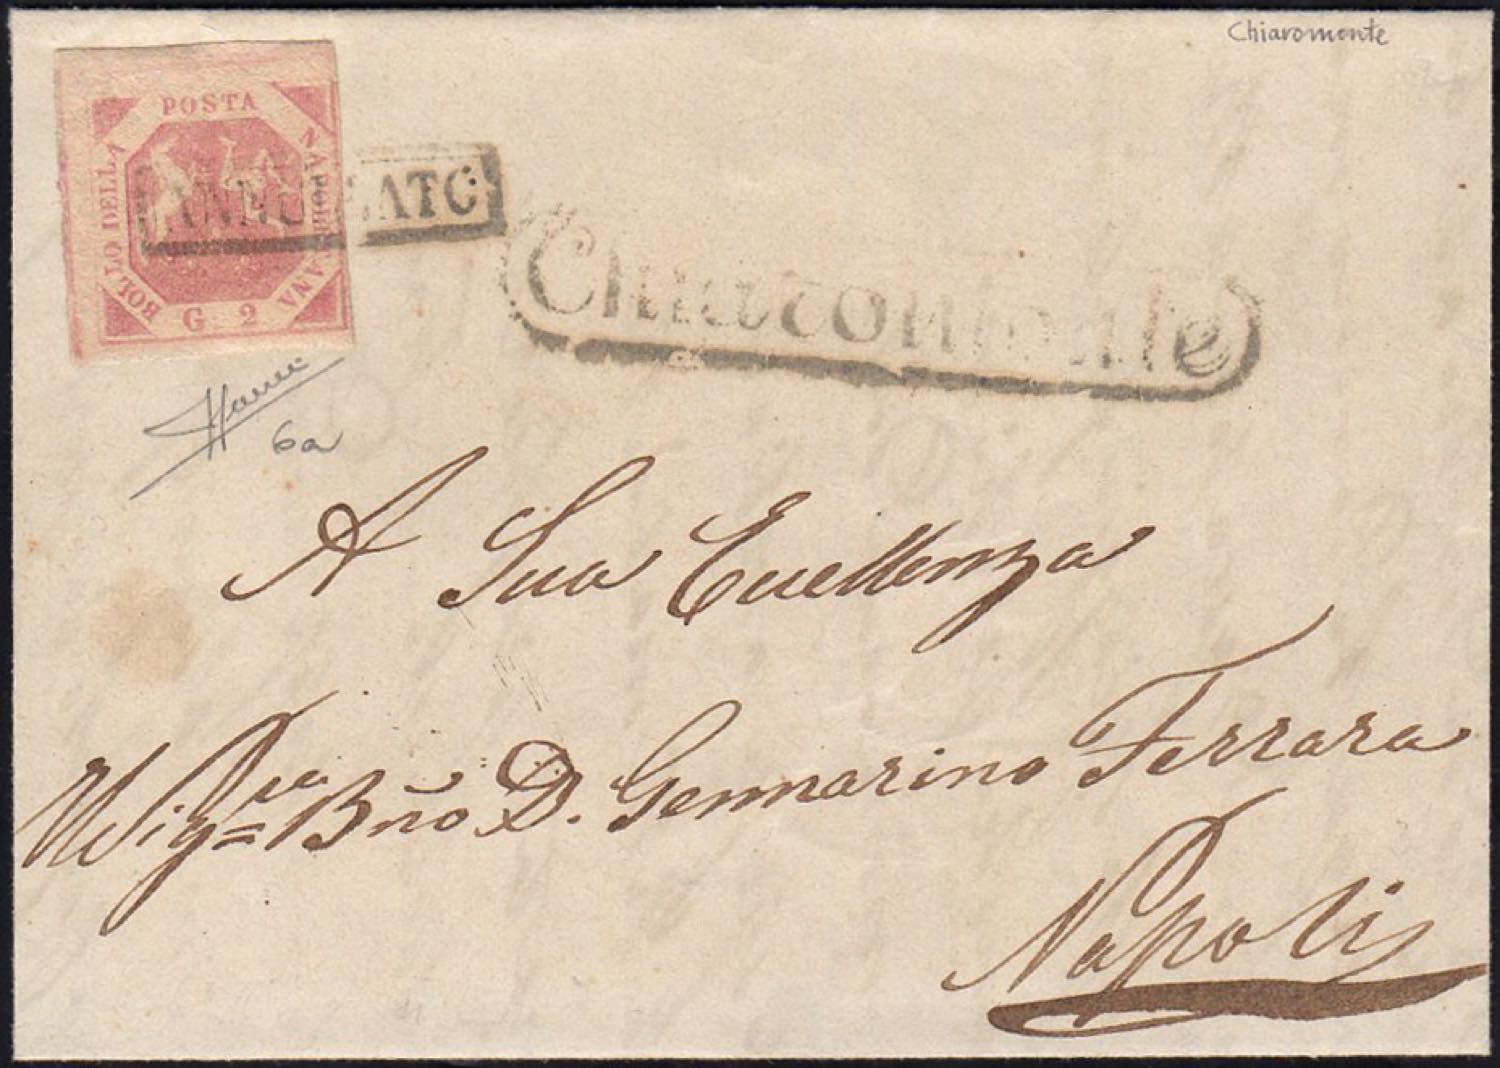 Chiaromonte
BOLLO DELLA POSTA NAPOLETANA
G. 2
ANNULLATO
Chiaromonte
6a
A Sua Eccellenza
Sig= Bño D. Gennarino Ferrara
Napoli